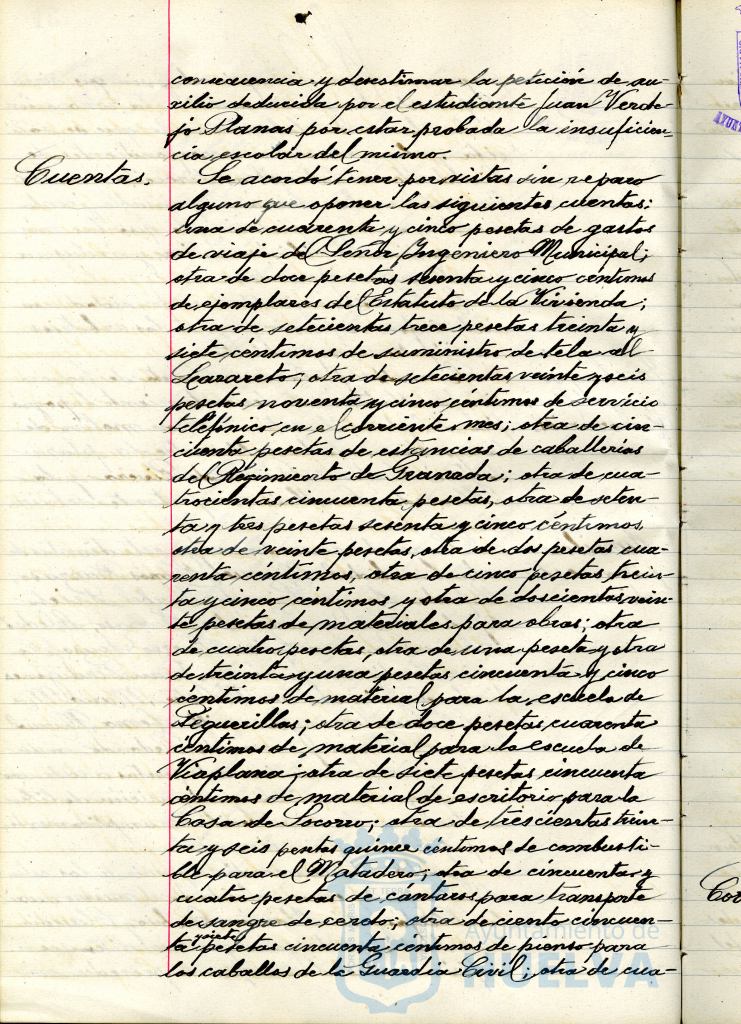 consecuencia y desestimar la petición de au-
xilio deducida por el estudiante Juan Verde-
jo Planas por estar probada la insuficien-
cia escolar del mismo.
Cuentas.
Se acordó tener por vistas sin reparo
alguno que oponer las siguientes cuentas:
una de cuarenta y cinco pesetas de gastos
de viaje del Señor Ingeniero Municipal;
otra de doce pesetas sesenta y cinco céntimos
de ejemplares del Estatuto de la Vivienda;
otra de setecientas trece pesetas treinta y
siete céntimos de suministro de tela al
Lazareto; otra de setecientas veinte y seis
pesetas noventa y cinco céntimos de servicio
telefónico en el corriente mes; otra de cin-
cuenta pesetas de estancias de caballerias
del Regimiento de Granada; otra de cua-
trocientas cincuenta pesetas, otra de seten-
ta y tres pesetas sesenta y cinco céntimos,
otra de veinte pesetas, otra de dos pesetas cua-
renta céntimos, otra de cinco pesetas trein-
ta y cinco céntimos y otra de doscientas vein-
te pesetas de materiales para obras; otra
de cuatro pesetas, otra de una peseta y otra
de treinta y una pesetas cincuenta y cinco
céntimos de material para la escuela de
Peguerillas; otra de doce pesetas cuarenta
céntimos de material para la escuela de
Viaplana; otra de siete pesetas cincuenta
céntimos de material de escritorio para la
Casa de Socorro; otra de trescientas trein-
ta y seis pesetas quince céntimos de combusti-
ble para el Matadero; otra de cincuenta y
cuatro pesetas de cántaros para transporte
de sangre de cerdo; otra de ciento cincuen-
ta y siete pesetas cincuenta céntimos de pienso para
los caballos de la Guardia Civil; otra de cua-
Ayuntamiento de
HUELVA